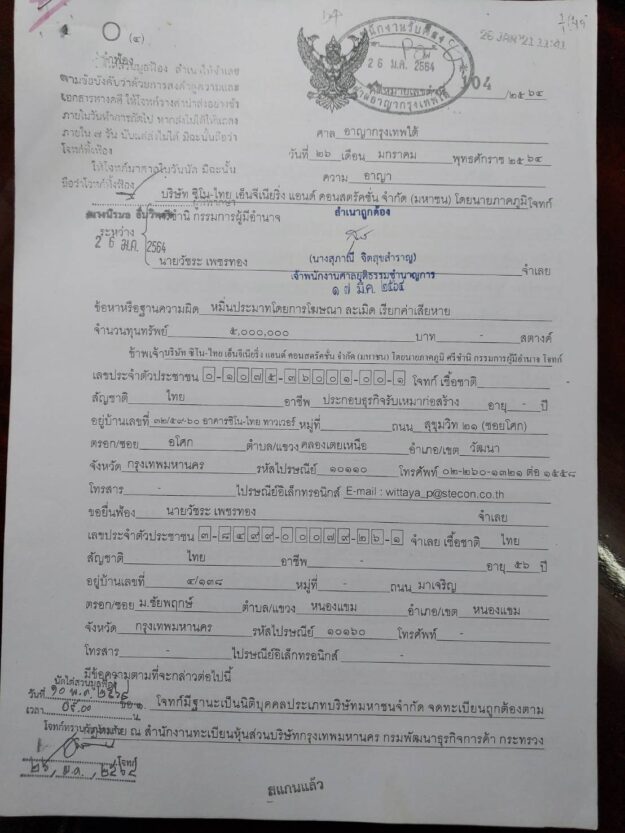 (๔)
26 JAN '21
๒ ๖ ม.ค. 2564
104
/๒๕๖๔
สำเนาให้จำเลย
ตามข้อบังคับว่าด้วยการส่งคำคู่ความและ
เอกสารทางคดี ให้โจทก์วางค่านำส่งอย่างช้า
ภายในวันทำการถัดไป หากส่งไม่ได้ให้แถลง
ภายใน ๗ วัน นับแต่ส่งไม่ได้ มิฉะนั้นถือว่า
โจทก์ทิ้งฟ้อง
ให้โจทก์มาศาลในวันนัด มิฉะนั้น
ถือว่าโจทก์ทิ้งฟ้อง
ศาล อาญากรุงเทพใต้
วันที่ ๒๖ เดือน มกราคม พุทธศักราช ๒๕๖๔
ความ อาญา
บริษัท ซิโน-ไทย เอ็นจีเนียริ่ง แอนด์ คอนสตรัคชั่น จำกัด (มหาชน) โดยนายภาคภูมิ โจทก์
ศรีชำนิ กรรมการผู้มีอำนาจ
สำเนาถูกต้อง
ระหว่าง
2 6 ม.ค. 2564
(นางสุภาณี จิตสุขสำราญ)
นายวัชระ เพชรทอง จำเลย
เจ้าพนักงานศาลยุติธรรมชำนาญการ
๑๗ มี.ค. ๒๕๖๔
ข้อหาหรือฐานความผิด หมิ่นประมาทโดยการโฆษณา ละเมิด เรียกค่าเสียหาย
จำนวนทุนทรัพย์ ๕,๐๐๐,๐๐๐ บาท - สตางค์
ข้าพเจ้า บริษัท ซิโน-ไทย เอ็นจีเนียริ่ง แอนด์ คอนสตรัคชั่น จำกัด (มหาชน) โดยนายภาคภูมิ ศรีชำนิ กรรมการผู้มีอำนาจ โจทก์
เลขประจำตัวประชาชน ๐-๑๐๗๕-๓๖๐๐๑-๐๐-๑ โจทก์ เชื้อชาติ
สัญชาติ ไทย อาชีพ ประกอบธุรกิจรับเหมาก่อสร้าง อายุ - ปี
อยู่บ้านเลขที่ ๓๒/๕๙-๖๐ อาคารซิโน-ไทย ทาวเวอร์ หมู่ที่ ถนน สุขุมวิท ๒๑ (ซอยโศก)
ตรอก/ซอย อโศก ตำบล/แขวง คลองเตยเหนือ อำเภอ/เขต วัฒนา
จังหวัด กรุงเทพมหานคร รหัสไปรษณีย์ ๑๐๑๑๐ โทรศัพท์ ๐๒-๒๖๐-๑๓๒๑ ต่อ ๑๕๕๘
โทรสาร - ไปรษณีย์อิเล็กทรอนิกส์ E-mail : wittaya_p@stecon.co.th
ขอยื่นฟ้อง นายวัชระ เพชรทอง จำเลย
เลขประจำตัวประชาชน ๓-๘๔๙๙-๐๐๐๗๙-๒๖-๑ จำเลย เชื้อชาติ ไทย
สัญชาติ ไทย อาชีพ - อายุ ๕๖ ปี
อยู่บ้านเลขที่ ๔/๑๓๘ หมู่ที่ - ถนน มาเจริญ
ตรอก/ซอย ม.ชัยพฤกษ์ ตำบล/แขวง หนองแขม อำเภอ/เขต หนองแขม
จังหวัด กรุงเทพมหานคร รหัสไปรษณีย์ ๑๐๑๖๐ โทรศัพท์ -
โทรสาร - ไปรษณีย์อิเล็กทรอนิกส์ -
มีข้อความตามที่จะกล่าวต่อไปนี้
นัดไต่สวนมูลฟ้อง
วันที่
เวลา
ข้อ ๑. โจทก์มีฐานะเป็นนิติบุคคลประเภทบริษัทมหาชนจำกัด จดทะเบียนถูกต้องตาม
ณ สำนักงานทะเบียนหุ้นส่วนบริษัทกรุงเทพมหานคร กรมพัฒนาธุรกิจการค้า กระทรวง
โจทก์
สแกนแล้ว